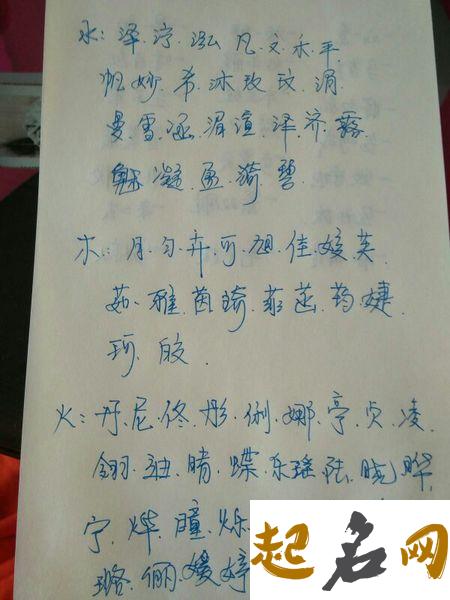 水: 泽.泞.泓.凡.文.禾.平.
帆.妙.希.沐.玫.玟.湄.
曼.雪.涵.湄.渲.泽.济.露.
魅.凝.盈.漪.碧.
木: 月.匀.卉.可.旭.佳.媛.芙.
茹.雅.茵.琦.菲.茜.药.婕.
珂.皎.
火: 丹.尼.佟.彤.俐.娜.亭.贞.凌.
翎.迪.晴.蝶.东.瑶.陆.晓.晔.
宁.烨.瞳.烁
璐.俪.嫒.婷
起名网